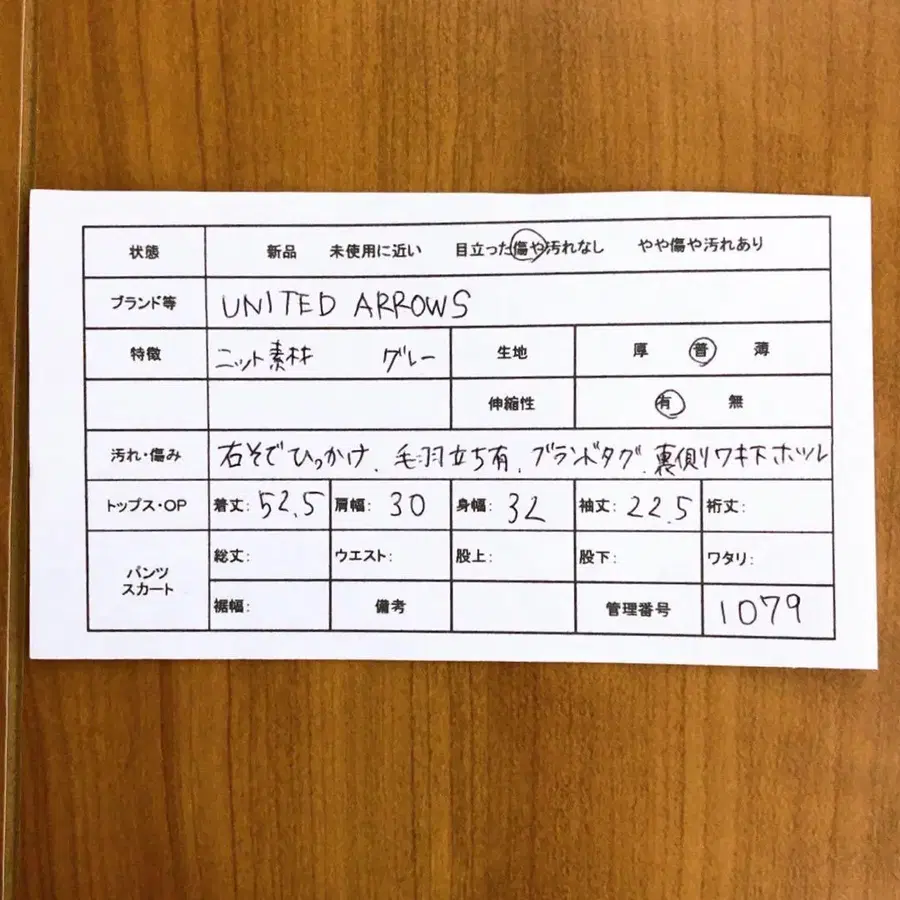 状態 新品 未使用に近い 目立った傷や汚れなし やや傷や汚れあり
ブランド等 UNITED ARROWS
特徴 ニット素材 グレー 生地 厚 普 薄
伸縮性 有 無
汚れ・傷み 右そでひっかけ、毛羽立ち有、ブランドタグ、裏側ワキ下ホツレ
トップス・OP 着丈: 52.5 肩幅: 30 身幅: 32 袖丈: 22.5 裄丈:
パンツ
スカート
総丈: ウエスト: 股上: 股下: ワタリ:
裾幅: 備考 管理番号 1079